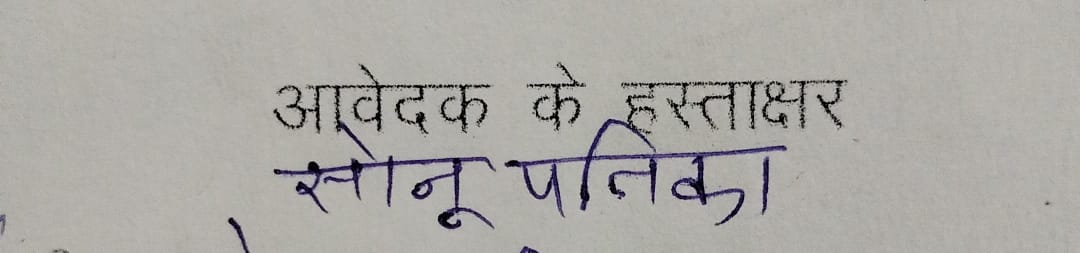 आवेदक के हस्ताक्षर
सोनू पनिका